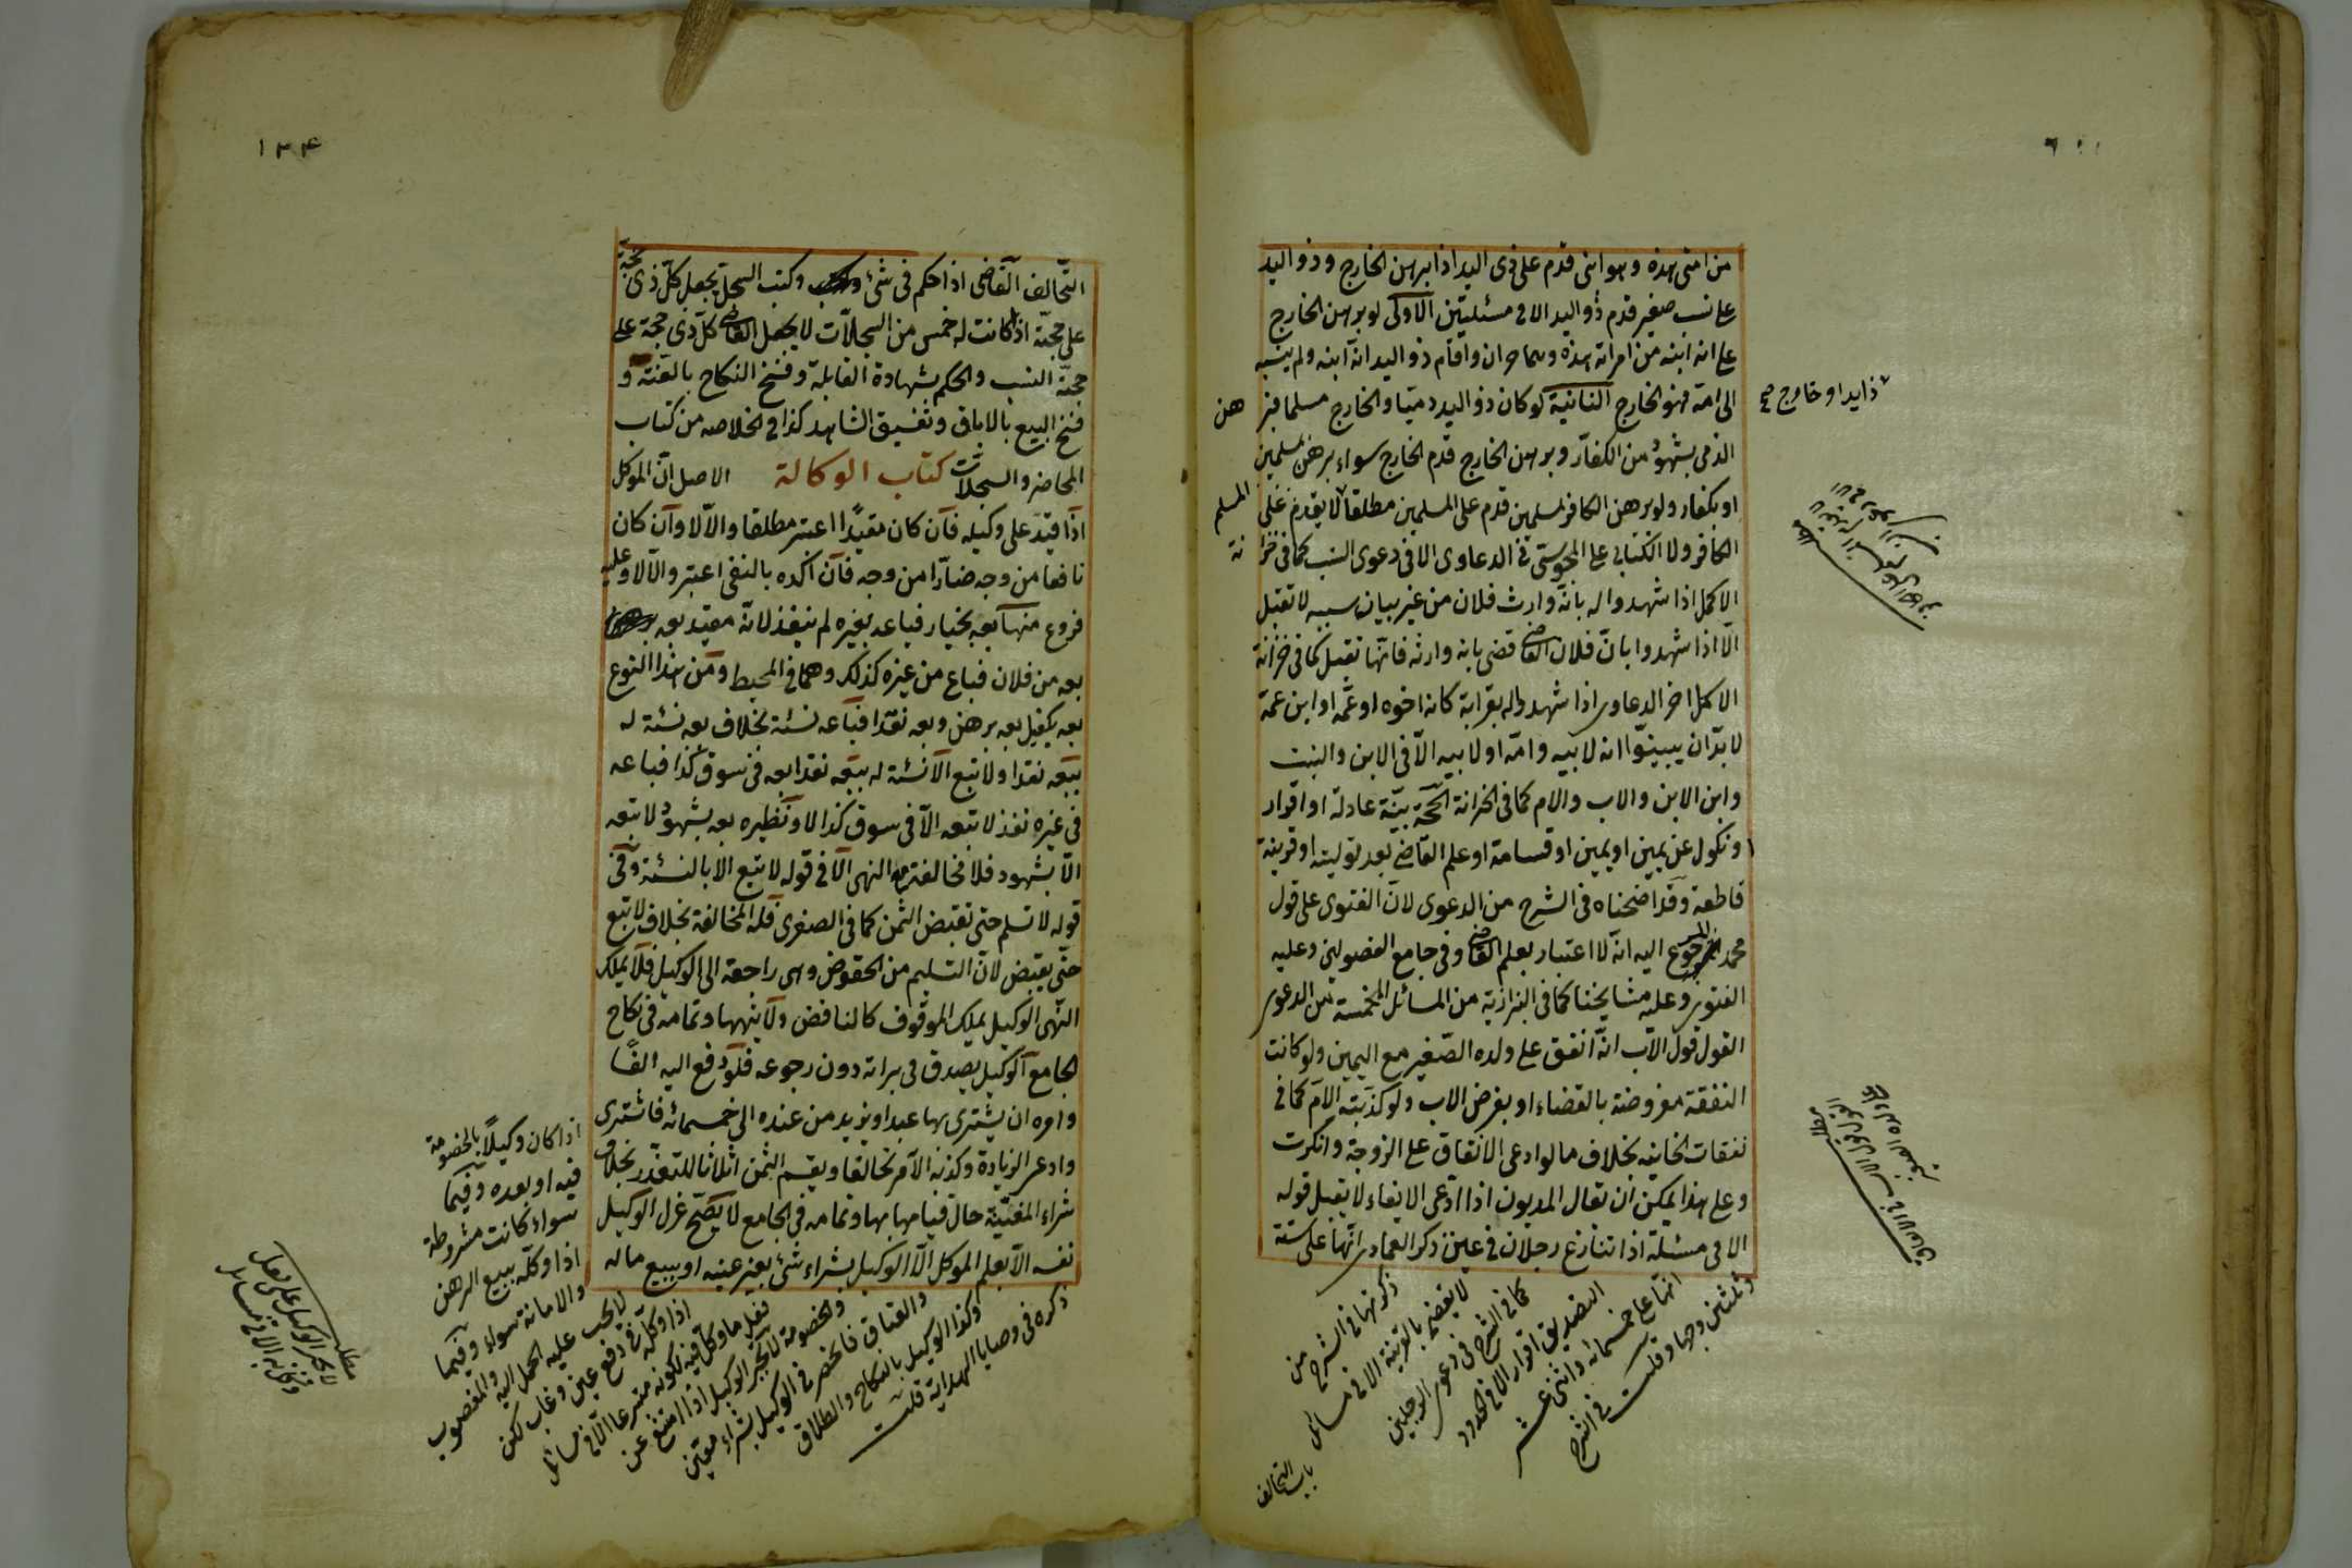 من امتى هذه وهو ابنى قدم على ذى اليد اذا برهن الخارج وذو اليد
على نسب صغير قدم ذو اليد الا فى مسئلتين الاولى لو برهن الخارج
على انه ابنه من امرأته هذه وهما حران واقام ذو اليد انه ابنه ولم ينسبه
الى امه فهو للخارج الثانية لو كان ذو اليد ذميا والخارج مسلما فبرهن
الذمى بشهود من الكفار وبرهن الخارج قدم الخارج سواء برهن بمسلمين
او بكفار ولو برهن الكافر بمسلمين قدم على المسلم مطلقا لا يقدم على
الكافر ولا الكتابى على المجوسى فى الدعاوى الا فى دعوى النسب كما فى خزانة
الاكمل اذا شهدوا له بانه وارث فلان من غير بيان سببه لا تقبل
الا اذا شهدوا بان فلان القاضى قضى بانه وارثه فانها تقبل كما فى خزانة
الاكمل اخر الدعاوى اذا شهدوا له بقرابة كانه اخوه او عمه او ابن عمه
لا بد ان يبينوا انه لابيه وامه او لابيه الا فى الابن والبنت
وابن الابن والاب والام كما فى الخزانة الحجة بينة عادلة او اقرار
ونكول عن يمين او يمين او قسامة او علم القاضى بعد توليته او قرينة
قاطعة وقد اوضحناه فى الشرح من الدعوى لان الفتوى على قول
محمد المرجوع اليه انه لا اعتبار بعلم القاضى وفى جامع الفصولين وعليه
الفتوى وعليه مشايخنا كما فى البزازية من المسائل المخمسة من الدعوى
القول قول الاب انه انفق على ولده الصغير مع اليمين ولو كانت
النفقة مفروضة بالقضاء او بفرض الاب ولو كذبته الام كما فى
نفقات الخانية بخلاف ما لو ادعى الانفاق على الزوجة وانكرت
وعلى هذا يمكن ان يقال المديون اذا ادعى الايفاء لا يقبل قوله
الا فى مسئلة اذا تنازع رجلان فى عين ذكر العمادى انها على ستة
وثلثين وجها وقلت فى الشرح
انها على خمسمائة واثنى عشر
التصديق اقرار الا فى الحدود
كما فى الشرح فى دعوى الرجلين
لا يقضى بالقرينة الا فى مسائل
ذكرتها فى الشرح من
باب التحالف
ذا يد او خارج صح
١٣٤
التحالف القاضى اذا حكم فى شئ وكتب السجل يجعل كل ذى حجة
على حجته اذا كانت له خمس من السجلات لا يجعل القاضى كل ذى حجة على
حجته النسب والحكم بشهادة القابلة وفسخ النكاح بالعنة و
فسخ البيع بالاباق وتفسيق الشاهد كذا فى الخلاصه من كتاب
المحاضر والسجلات كتاب الوكالة الاصل ان الموكل
اذا قيد على وكيله فان كان مقيدا اعتبر مطلقا والا لا وان كان
نافعا من وجه ضارا من وجه فان اكده بالنفى اعتبر والا لا وعليه
فروع منها بعه بخيار فباعه بغيره لم ينفذ لانه مقيد بعه
بعه من فلان فباع من غيره كذلك وهما فى المحيط ومن هذا النوع
بعه بكفيل بعه برهن وبعه نقدا فباعه نسئة بخلاف بعه نسئة له
بيعه نقدا ولا تبع الا نسئة له بيعه نقدا بعه فى سوق كذا فباعه
فى غيره نفذ لا تبعه الا فى سوق كذا لا ونظيره بعه بشهود لا تبعه
الا بشهود فلا مخالفة مع النهى الا فى قوله لا تبع الا بالنسئة وفى
قوله لا تسلم حتى تقبض الثمن كما فى الصغرى فله المخالفة بخلاف لا تبع
حتى يقبض لان التسليم من الحقوق وهى راجعة الى الوكيل فلا يملك
النهى الوكيل يملك الموقوف كالنافض ولا ينهها وتمامه فى نكاح
الجامع الوكيل يصدق فى براءته دون رجوعه فلو دفع اليه الفا
وامره ان يشترى بها عبدا ويزيد من عنده الى خمسمائه فاشترى
وادعى الزيادة وكذبه الآمر تحالفا ويقسم الثمن اثلاثا للتعذر بخلاف
شراء المعيبة حال قيامها بها وتمامه فى الجامع لا يصح عزل الوكيل
نفسه الا بعلم الموكل الا الوكيل بشراء شئ بغير عينه او ببيع ماله
ذكره فى وصايا الهداية قلت
وكذا الوكيل بالنكاح والطلاق
والعتاق فانحصر فى الوكيل بشراء معين
والخصومة لا يجبر الوكيل اذا امتنع عن
فعل ما وكل فيه لكونه متبرعا الا فى مسائل
اذا وكله فى دفع عين وغاب لكن
لا يجب عليه الحمل اليه والمغصوب
والامانة سواء وفيما
اذا وكله ببيع الرهن
سواء كانت مشروطة
فيه او بعده وفيما
اذا كان وكيلا بالخصومة
مطلب
لا يجبر الوكيل على فعل
ما وكل به الا فى مسائل